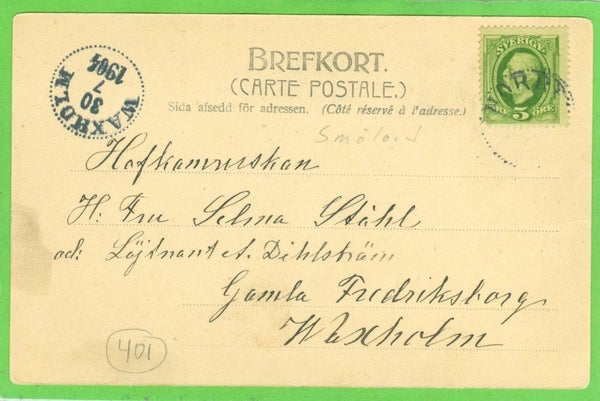 BREFKORT.
(CARTE POSTALE.)
Sida afsedd för adressen. (Côté réservé à l'adresse.)
SVERIGE
5 ÖRE
WAXHOLM
30
7
1904
Småland
H: Fru Selma Ståhl
ad: Löjtnant A. Dihlström
Gamla Fredriksborg
Waxholm
401